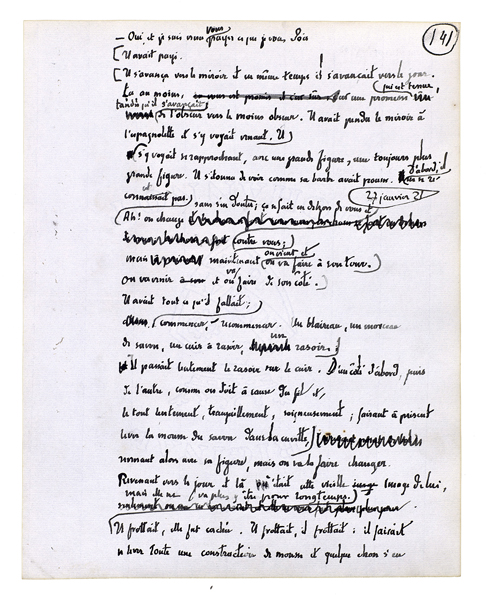 141
— Oui, et je sais vous ce que je vous dois
Il avait payé.
Il s'avança vers le miroir et en même temps il s'avançait vers le jour.
Là au moins, fut une promesse qui est tenue,
tandis qu'il s'avançait de l'obscur vers le moins obscur. Il avait pendu le miroir à
l'espagnolette et s'y voyait venant. Il
s'y voyait se rapprochant, avec une grande figure, une toujours plus
grande figure. Il s'étonna de voir comme sa barbe avait poussé. D'abord, il
connaissait pas.
27 janvier 21
sans fin dedans; ça se fait en dehors de vous et
Ah! on change
contre vous;
mais maintenant on vient et on va faire à son tour.
On va venir et on va faire de son côté.
Il avait tout ce qu'il fallait;
commencer, recommencer. Un blaireau, un morceau
de savon, un cuir à rasoir, un rasoir.
Il passait lentement le rasoir sur le cuir. D'un côté d'abord, puis
de l'autre, comme on doit à cause du fil et,
le tout lentement, tranquillement, soigneusement; faisant à présent
lever la mousse du savon dans la cuvette,
venant alors avec sa figure, mais on va la faire changer.
Revenant vers le jour et là était cette vieille image de lui,
mais elle ne va plus y être pour longtemps.
Il frottait, elle fut cachée. Il frottait, il frottait: il faisait
lever toute une construction de mousse et quelque chose s'en